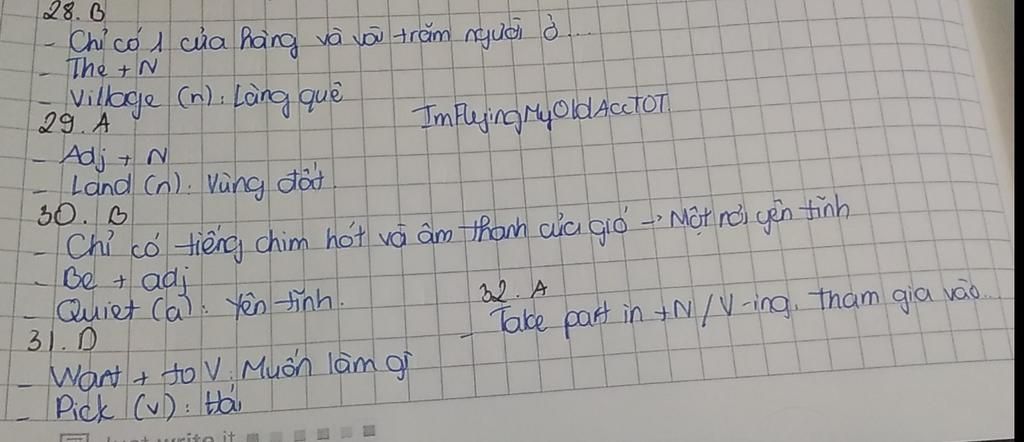 28. B
- Chỉ có 1 cửa hàng và vài trăm người ở...
- The + N
- Village (n): Làng quê
29. A
ImFlyingMyOldAccTOT
- Adj + N
- Land (n): Vùng đất
30. B
- Chỉ có tiếng chim hót và âm thanh của gió → Một nơi yên tĩnh
- Be + adj
- Quiet (a): Yên tĩnh.
31. D
- Want + to V: Muốn làm gì
- Pick (v): Hái
32. A
- Take part in + N / V-ing: tham gia vào...
write it